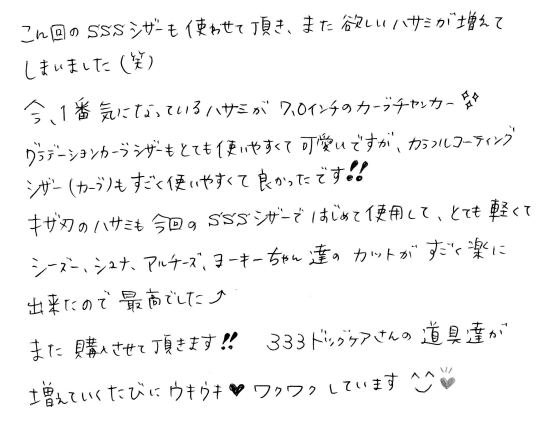 こん回のSSSシザーも使わせて頂き、また欲しいハサミが増えて
しまいました(笑)
今、1番気になっているハサミが 7.0インチのカーブチャンカー✨
グラデーションカーブシザーもとても使いやすくて可愛いですが、カラフルコーティング
シザー(カーブ)もすごく使いやすくて良かったです!!
キザ刃のハサミも今回のSSSシザーではじめて使用して、とても軽くて
シーズー、シュナ、マルチーズ、ヨーキーちゃん達のカットがすごく楽に
出来たので最高でした⤴
また購入させて頂きます!! 333ドッグケアさんの道具達が
増えていくたびにウキウキ♥ワクワクしています